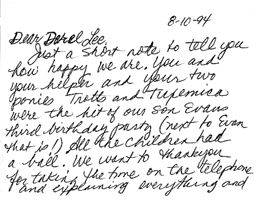 8-10-94
Dear Darel Lee,
Just a short note to tell you
how happy we are. You and
your helper and your two
ponies Trolls and
were the hit of our son Evans
third birthday party (next to Evan
that is!) All the children had
a ball. We want to thankyou
for taking the time on the telephone
and explaining everything and